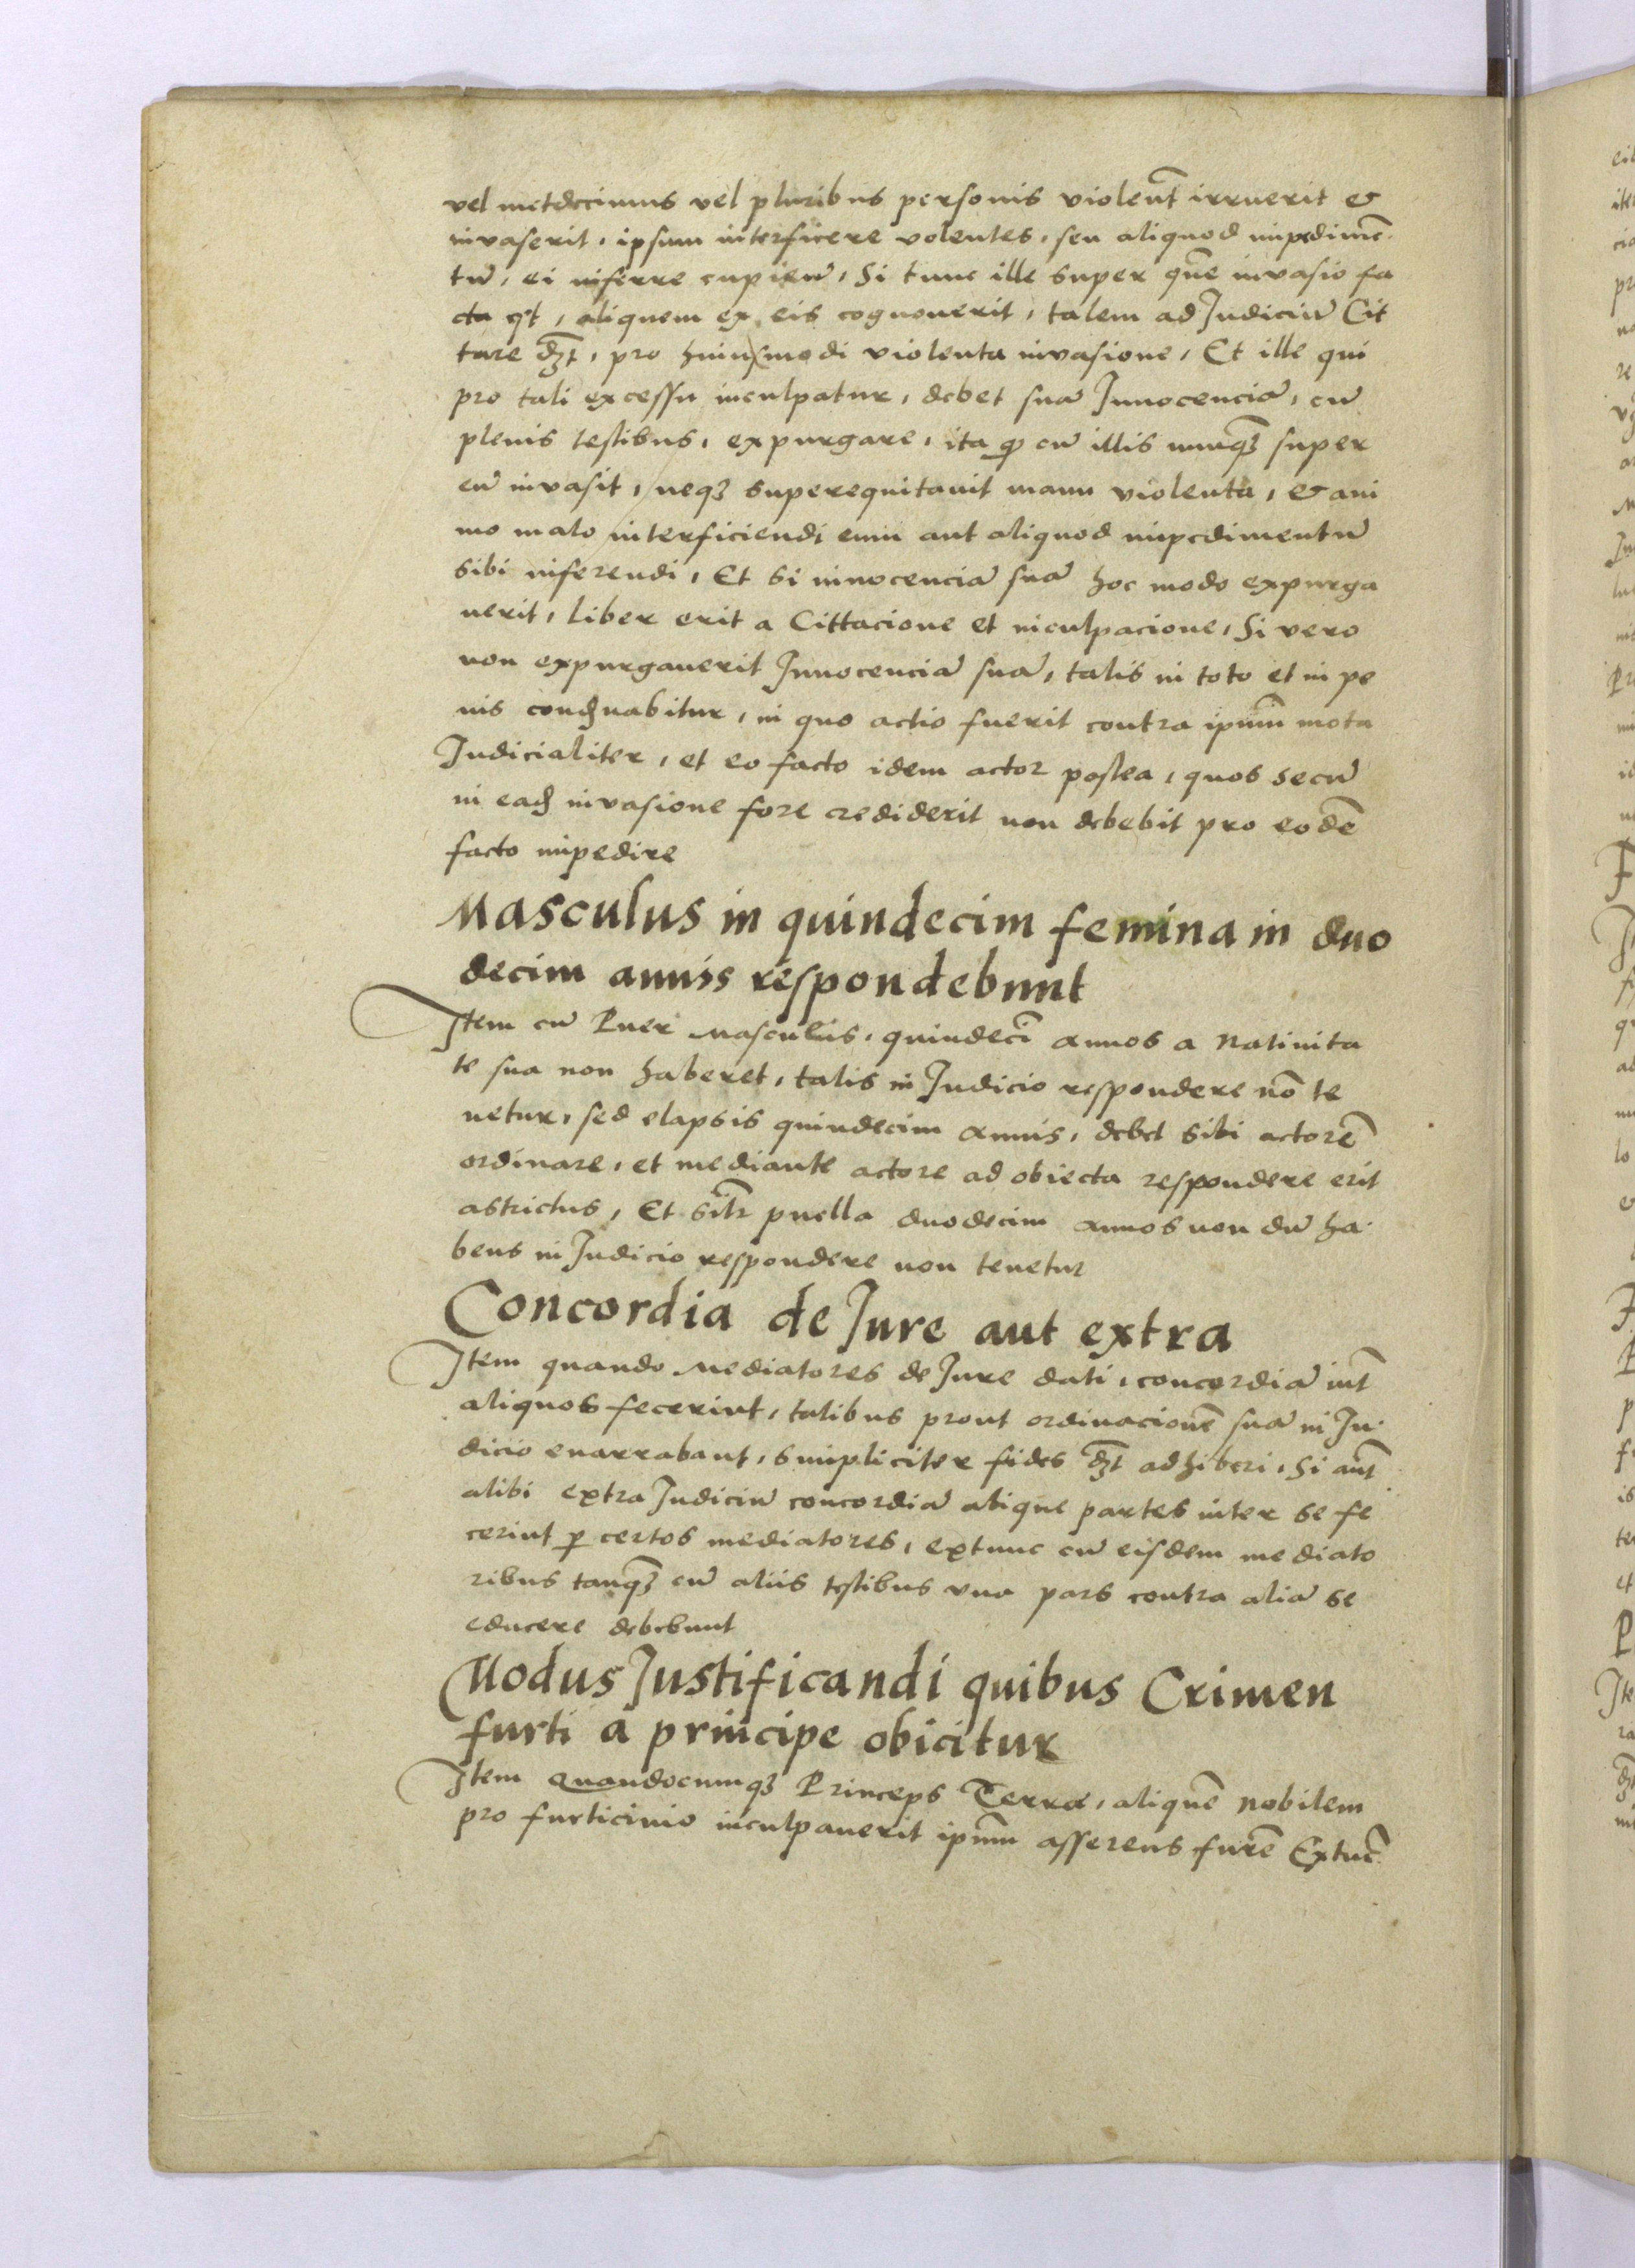 vel metdecimus vel pluribus personis violent̃ irruerit &
invaserit, ipsum interficere volentes, seu aliquod impedimē
tū, ei inferre cupien̄, Si tunc ille super quē invasio fa
cta est, aliquem ex eis cognouerit, talem ad Judiciū Cit
tare dꝫt, pro huiusmodi violenta invasione, Et ille qui
pro tali excessu inculpatur, debet suā Innocenciā, cū
plenis testibus, expurgare, ita ꝙ cū illis nunqꝫ super
eū invasit, neqꝫ superequitauit manu violenta, & ani
mo malo interficiendi eum aut aliquod impedimentū
sibi inferendi, Et si innocenciā suā hoc modo expurga
uerit, liber erit a Cittacione et inculpacione, Si vero
non expurgauerit Innocenciā suā, talis in toto et in pe
nis condēnabitur, in quo actio fuerit contra ipsum̄ mota
Judicialiter, et eo facto idem actor postea, quos secū
in eadē invasione fore crediderit non debebit pro eodē
facto impedire
Masculus in quindecim femina in duo
decim annis respondebunt
Item cū Puer Masculus, quindecī annos a Natiuita
te sua non haberet, talis in Judicio respondere nō te
netur, sed elapsis quindecim annis, debet sibi actorē
ordinare, et mediante actore ad obiecta respondere erit
astrictus, Et silr̄ puella duodecim annos non dū ha
bens in Judicio respondere non tenetur
Concordia de Jure aut extra
Item quando Mediatores de Jure dati, concordiā int̄
aliquos fecerint, talibus prout ordinacionē suā in Ju
dicio enarrabant, simpliciter fides dꝫt adhiberi, Si aut̄
alibi extra Judiciū concordiā alique partes inter se fe
cerint ꝑ certos mediatores, extunc cū eisdem mediato
ribus tanqꝫ cū aliis testibus vna pars contra aliā se
educere debebunt
Modus Justificandi quibus Crimen
furti a principe obicitur
Item Quandocumqꝫ Princeps Terrae, aliquē Nobilem
pro furticinio inculpauerit ipsum̄ asserens furē Extūc